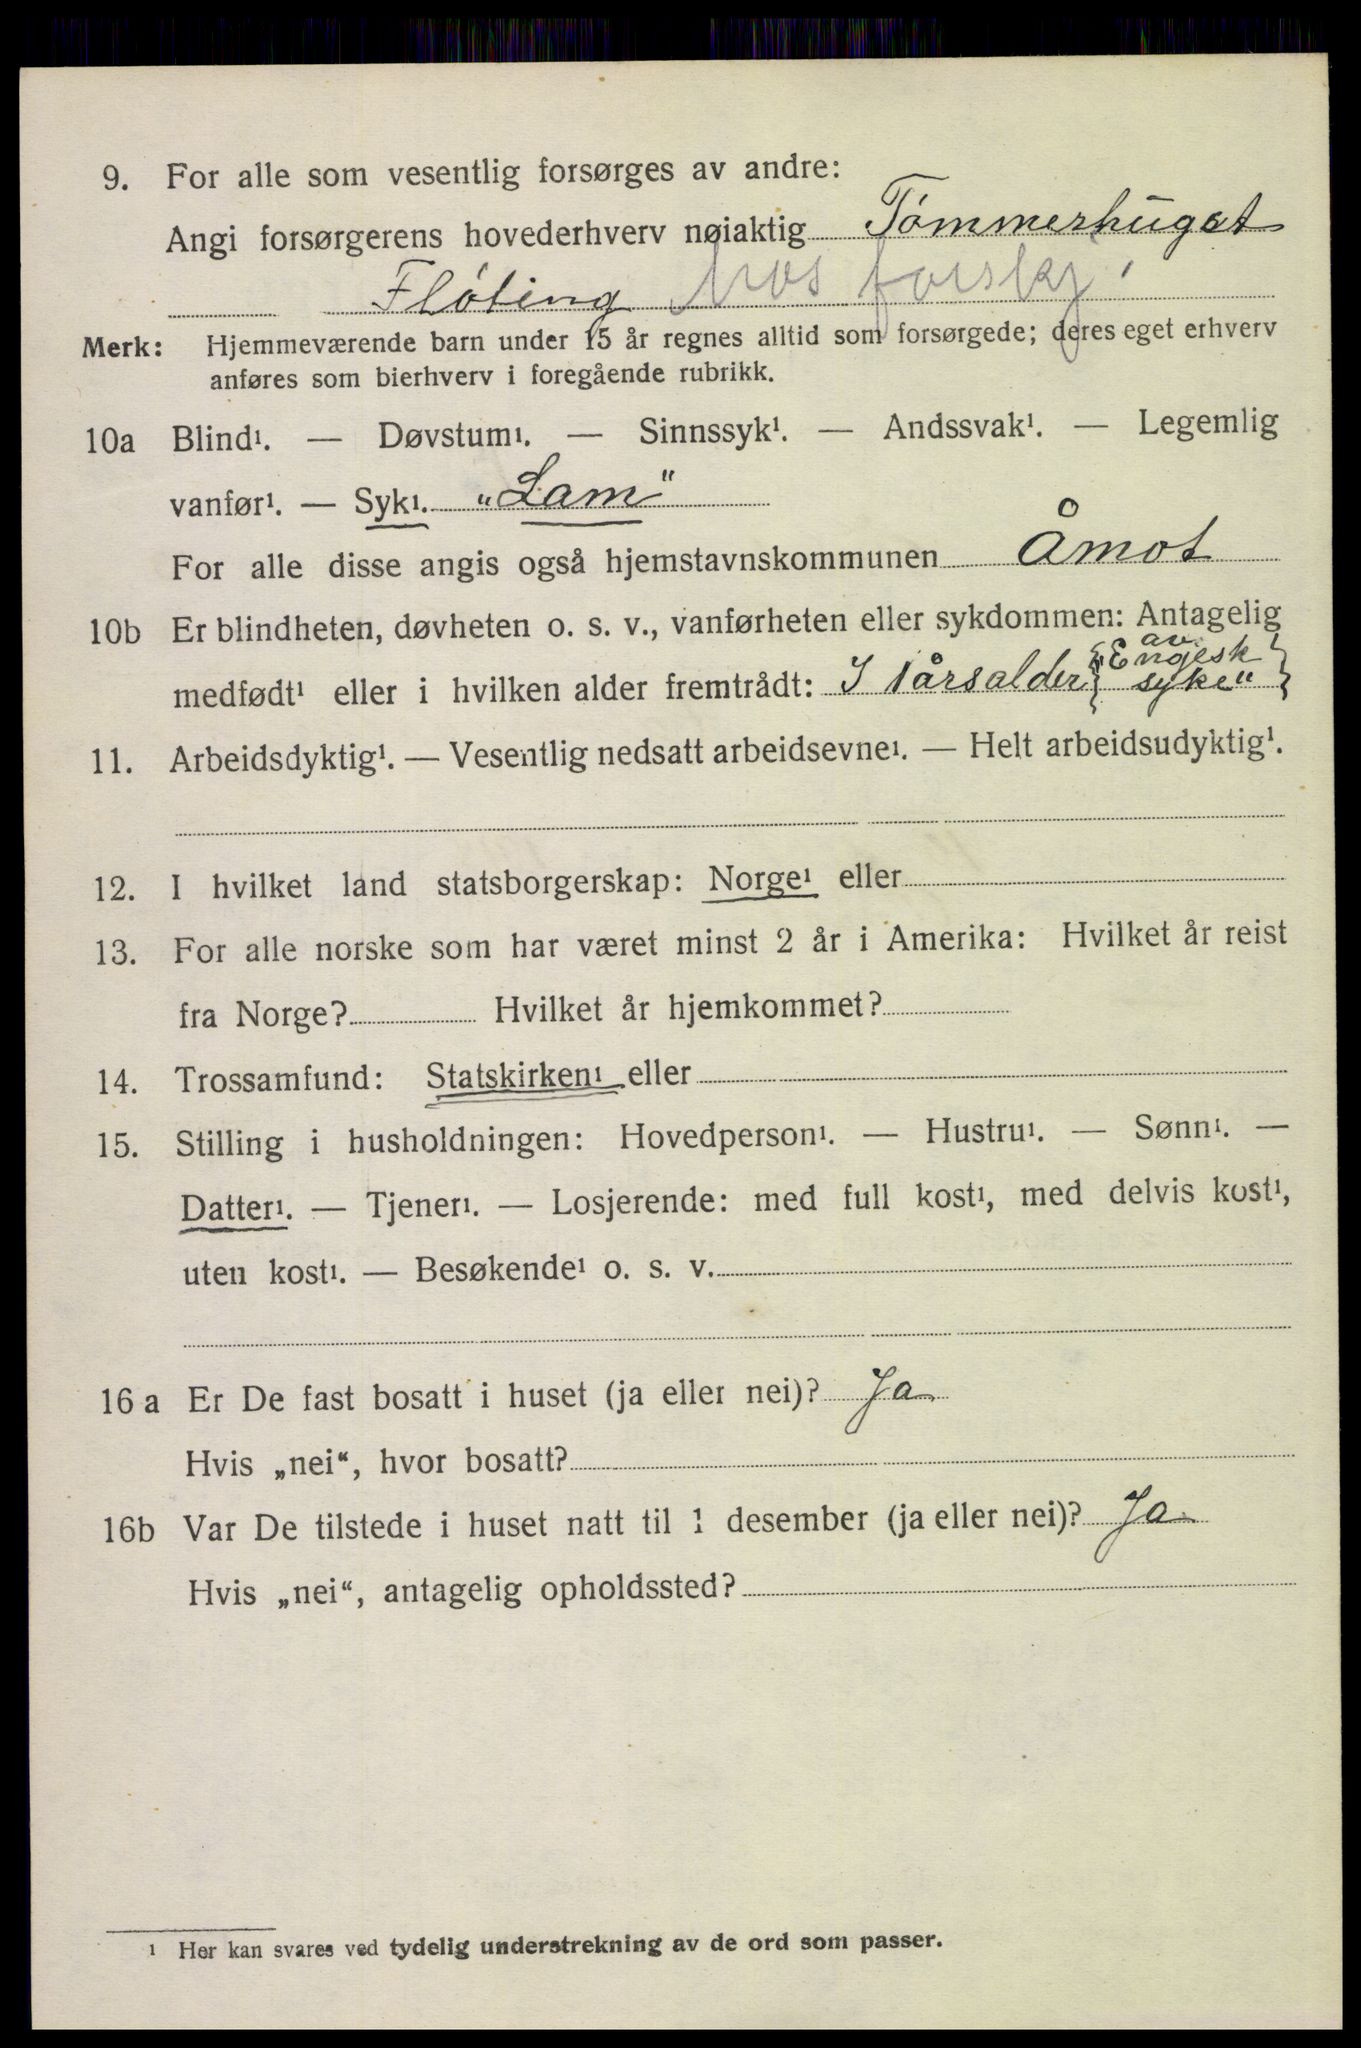 9. For alle som vesentlig forsørges av andre:
Angi forsørgerens hovederhverv nøiaktig Tømmerhugst
Fløting hos forskj.
Merk: Hjemmeværende barn under 15 år regnes alltid som forsørgede; deres eget erhverv
anføres som bierhverv i foregående rubrikk.
10a Blind¹. — Døvstum¹. — Sinnssyk¹. — Andssvak¹. — Legemlig
vanfør¹. — Syk¹. „Lam"
For alle disse angis også hjemstavnskommunen Åmot
10b Er blindheten, døvheten o. s. v., vanførheten eller sykdommen: Antagelig
medfødt¹ eller i hvilken alder fremtrådt: I 1 årsalder { av „Engelsk
syke" }
11. Arbeidsdyktig¹. — Vesentlig nedsatt arbeidsevne¹. — Helt arbeidsudyktig¹.
12. I hvilket land statsborgerskap: Norge¹ eller
13. For alle norske som har været minst 2 år i Amerika: Hvilket år reist
fra Norge? Hvilket år hjemkommet?
14. Trossamfund: Statskirken¹ eller
15. Stilling i husholdningen: Hovedperson¹. — Hustru¹. — Sønn¹. —
Datter¹. — Tjener¹. — Losjerende: med full kost¹, med delvis kost¹,
uten kost¹. — Besøkende¹ o. s. v.
16 a Er De fast bosatt i huset (ja eller nei)? Ja
Hvis „nei“, hvor bosatt?
16b Var De tilstede i huset natt til 1 desember (ja eller nei)? Ja
Hvis „nei“, antagelig opholdssted?
¹ Her kan svares ved tydelig understrekning av de ord som passer.